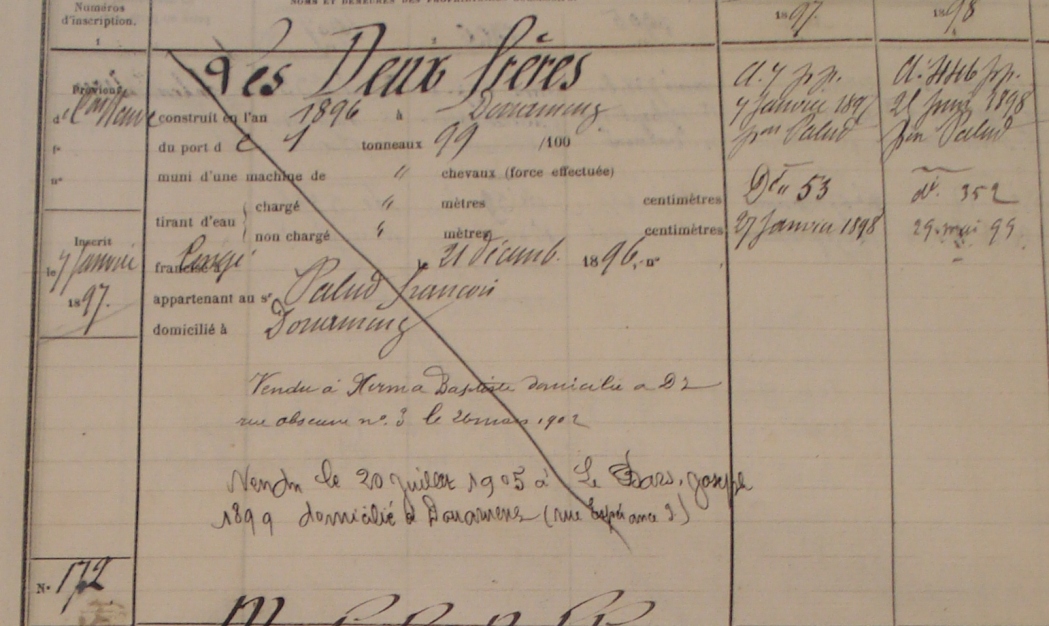 NOMS ET DEMEURES DES PROPRIÉTAIRES
Numéros
d'inscription.
1
2
1897
1898
Les Deux frères
Provient
de
f°
n°
construit en l'an 1896 à Douarnenez
du port de 1 tonneaux 99 /100
muni d'une machine de " chevaux (force effectuée)
tirant d'eau
chargé " mètres centimètres
non chargé " mètres centimètres
francisé à le 21 décemb. 1896, n°
appartenant au sr Palud François
domicilié à Douarnenez
Inscrit
le 7 Janvier
1897.
7 Janvier 1897
pon Palud
Don 53
27 Janvier 1898
21 Juin 1898
pon Palud
do. 352
29 mai 99
Vendu à Baptiste domicilié à Dz
rue obscure n° 3 le 26 mars 1902
Vendu le 20 juillet 1905 à Le Bars, Joseph
1899 domicilié à Douarnenez (rue Espérance 2)
N° 172